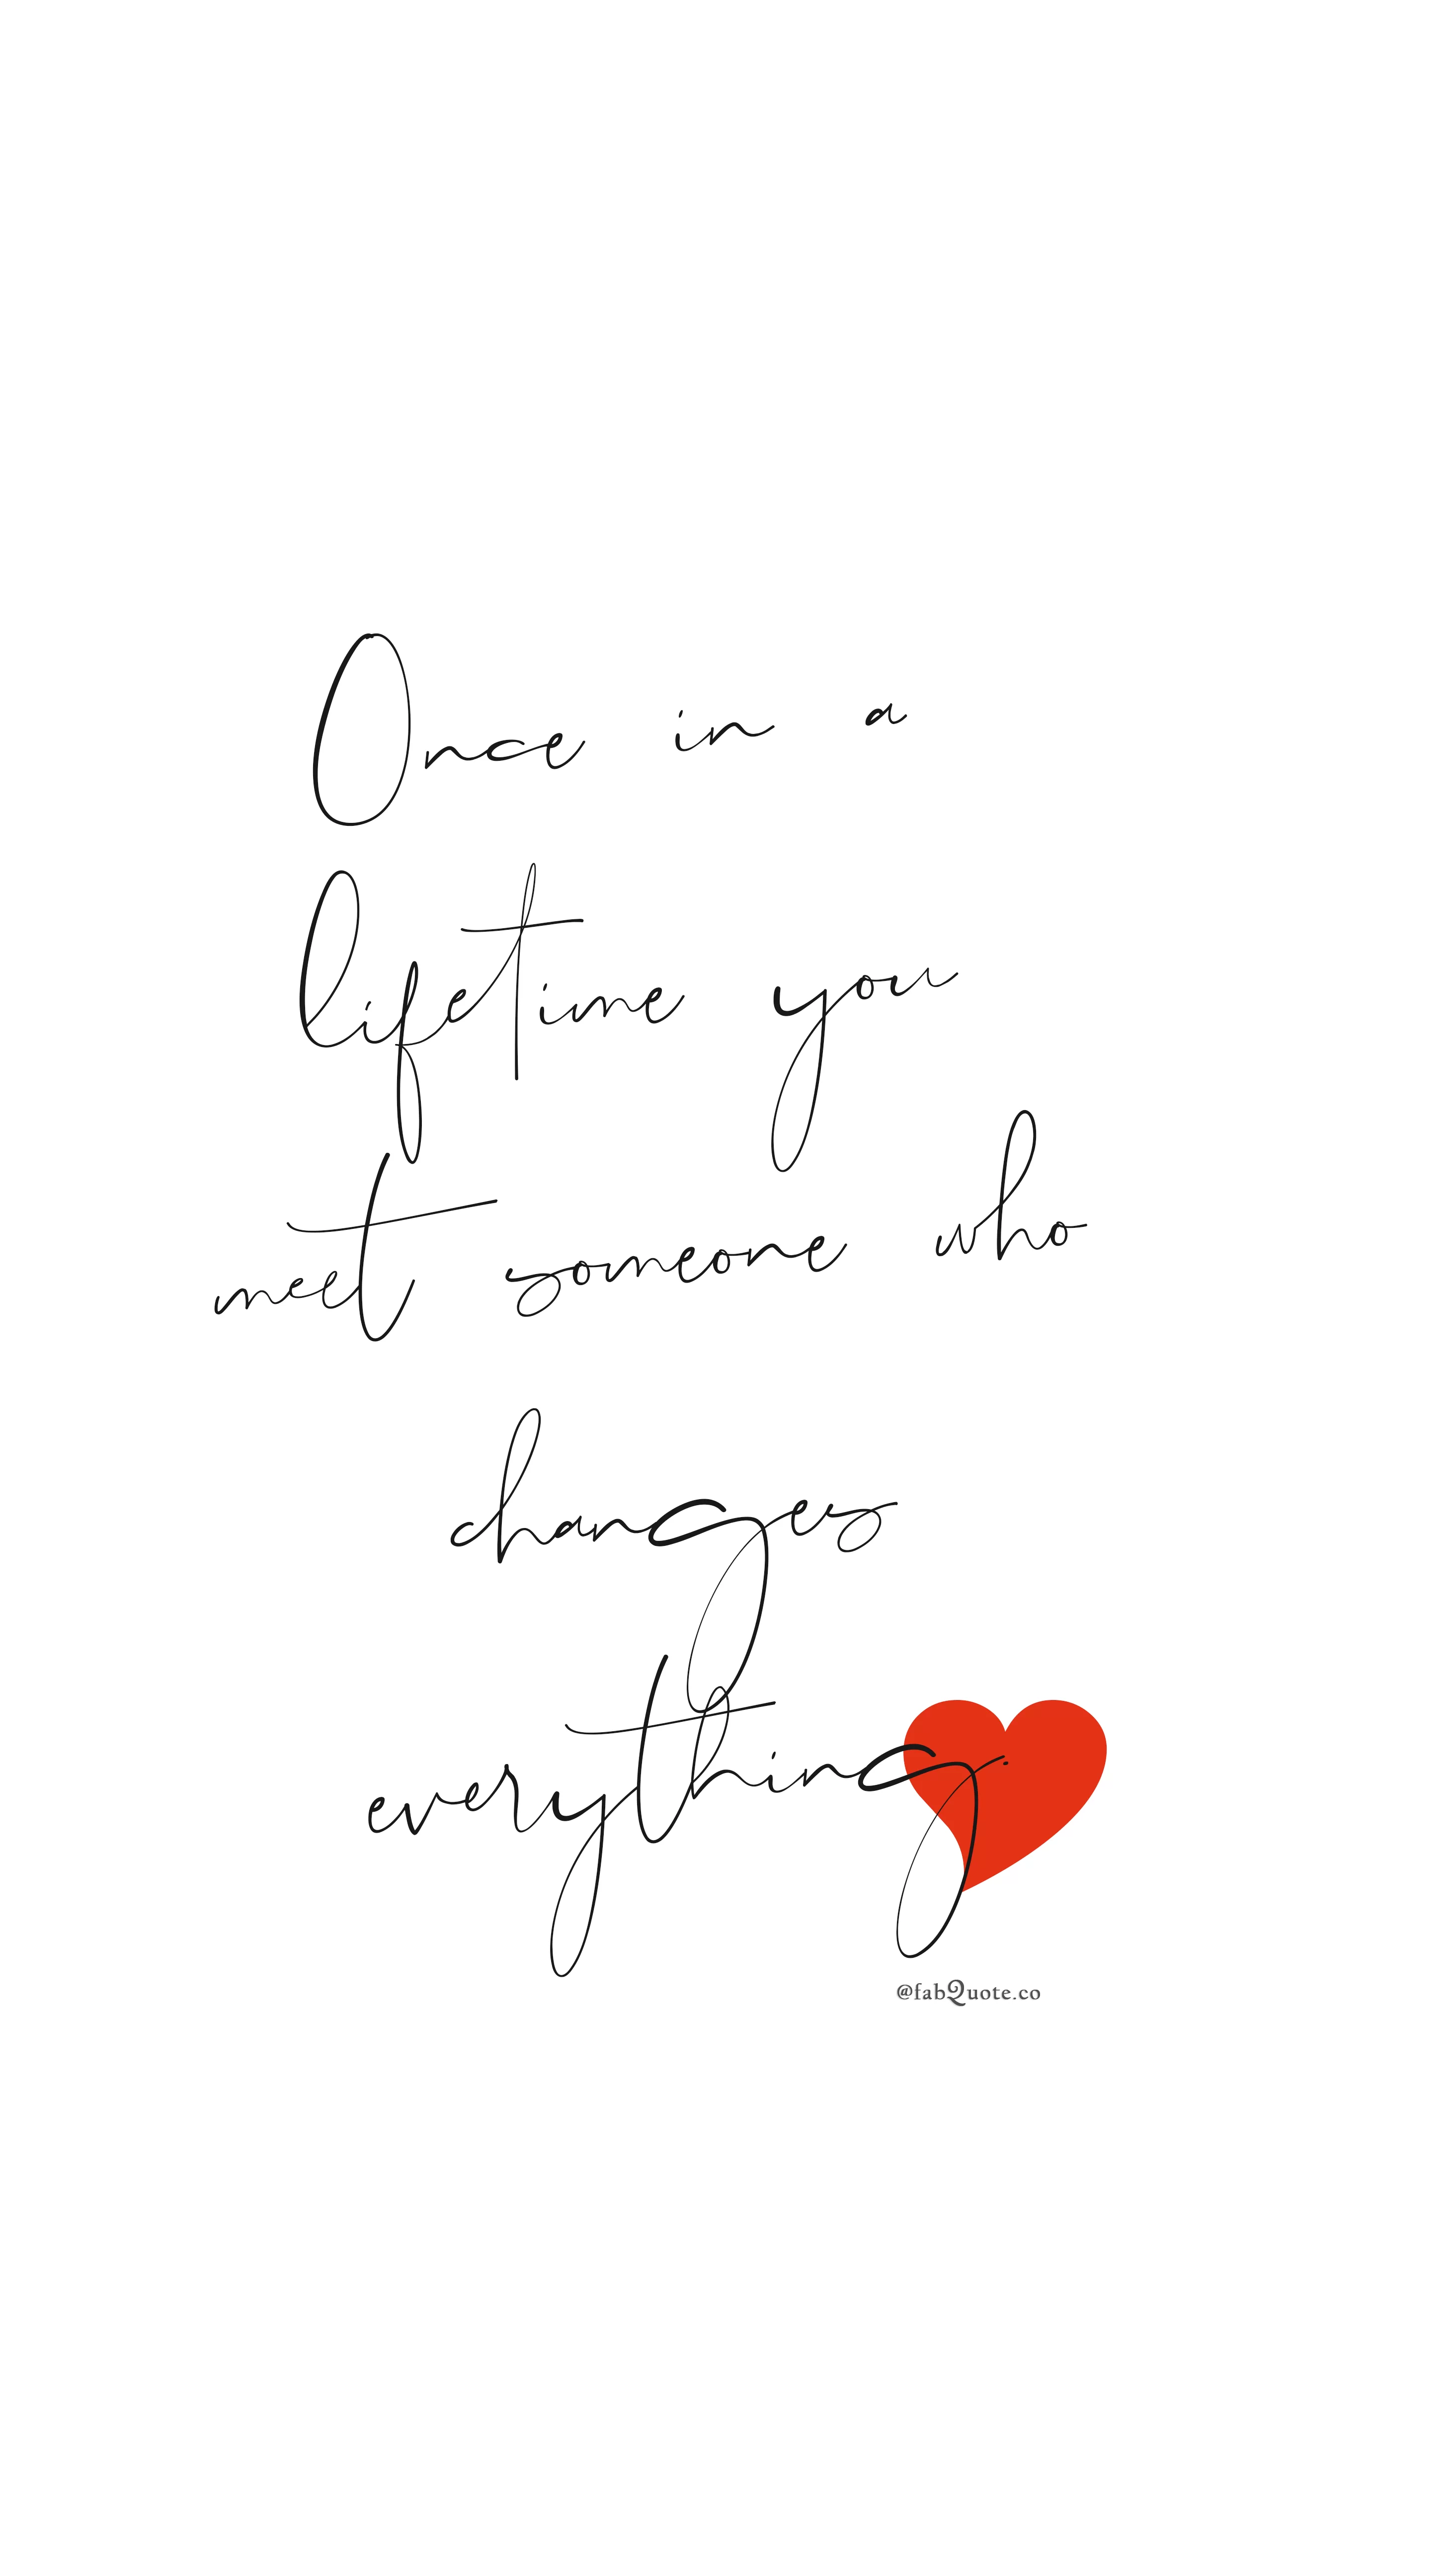 Once in a
lifetime you
meet someone who
changes
everything.
@fabQuote.co